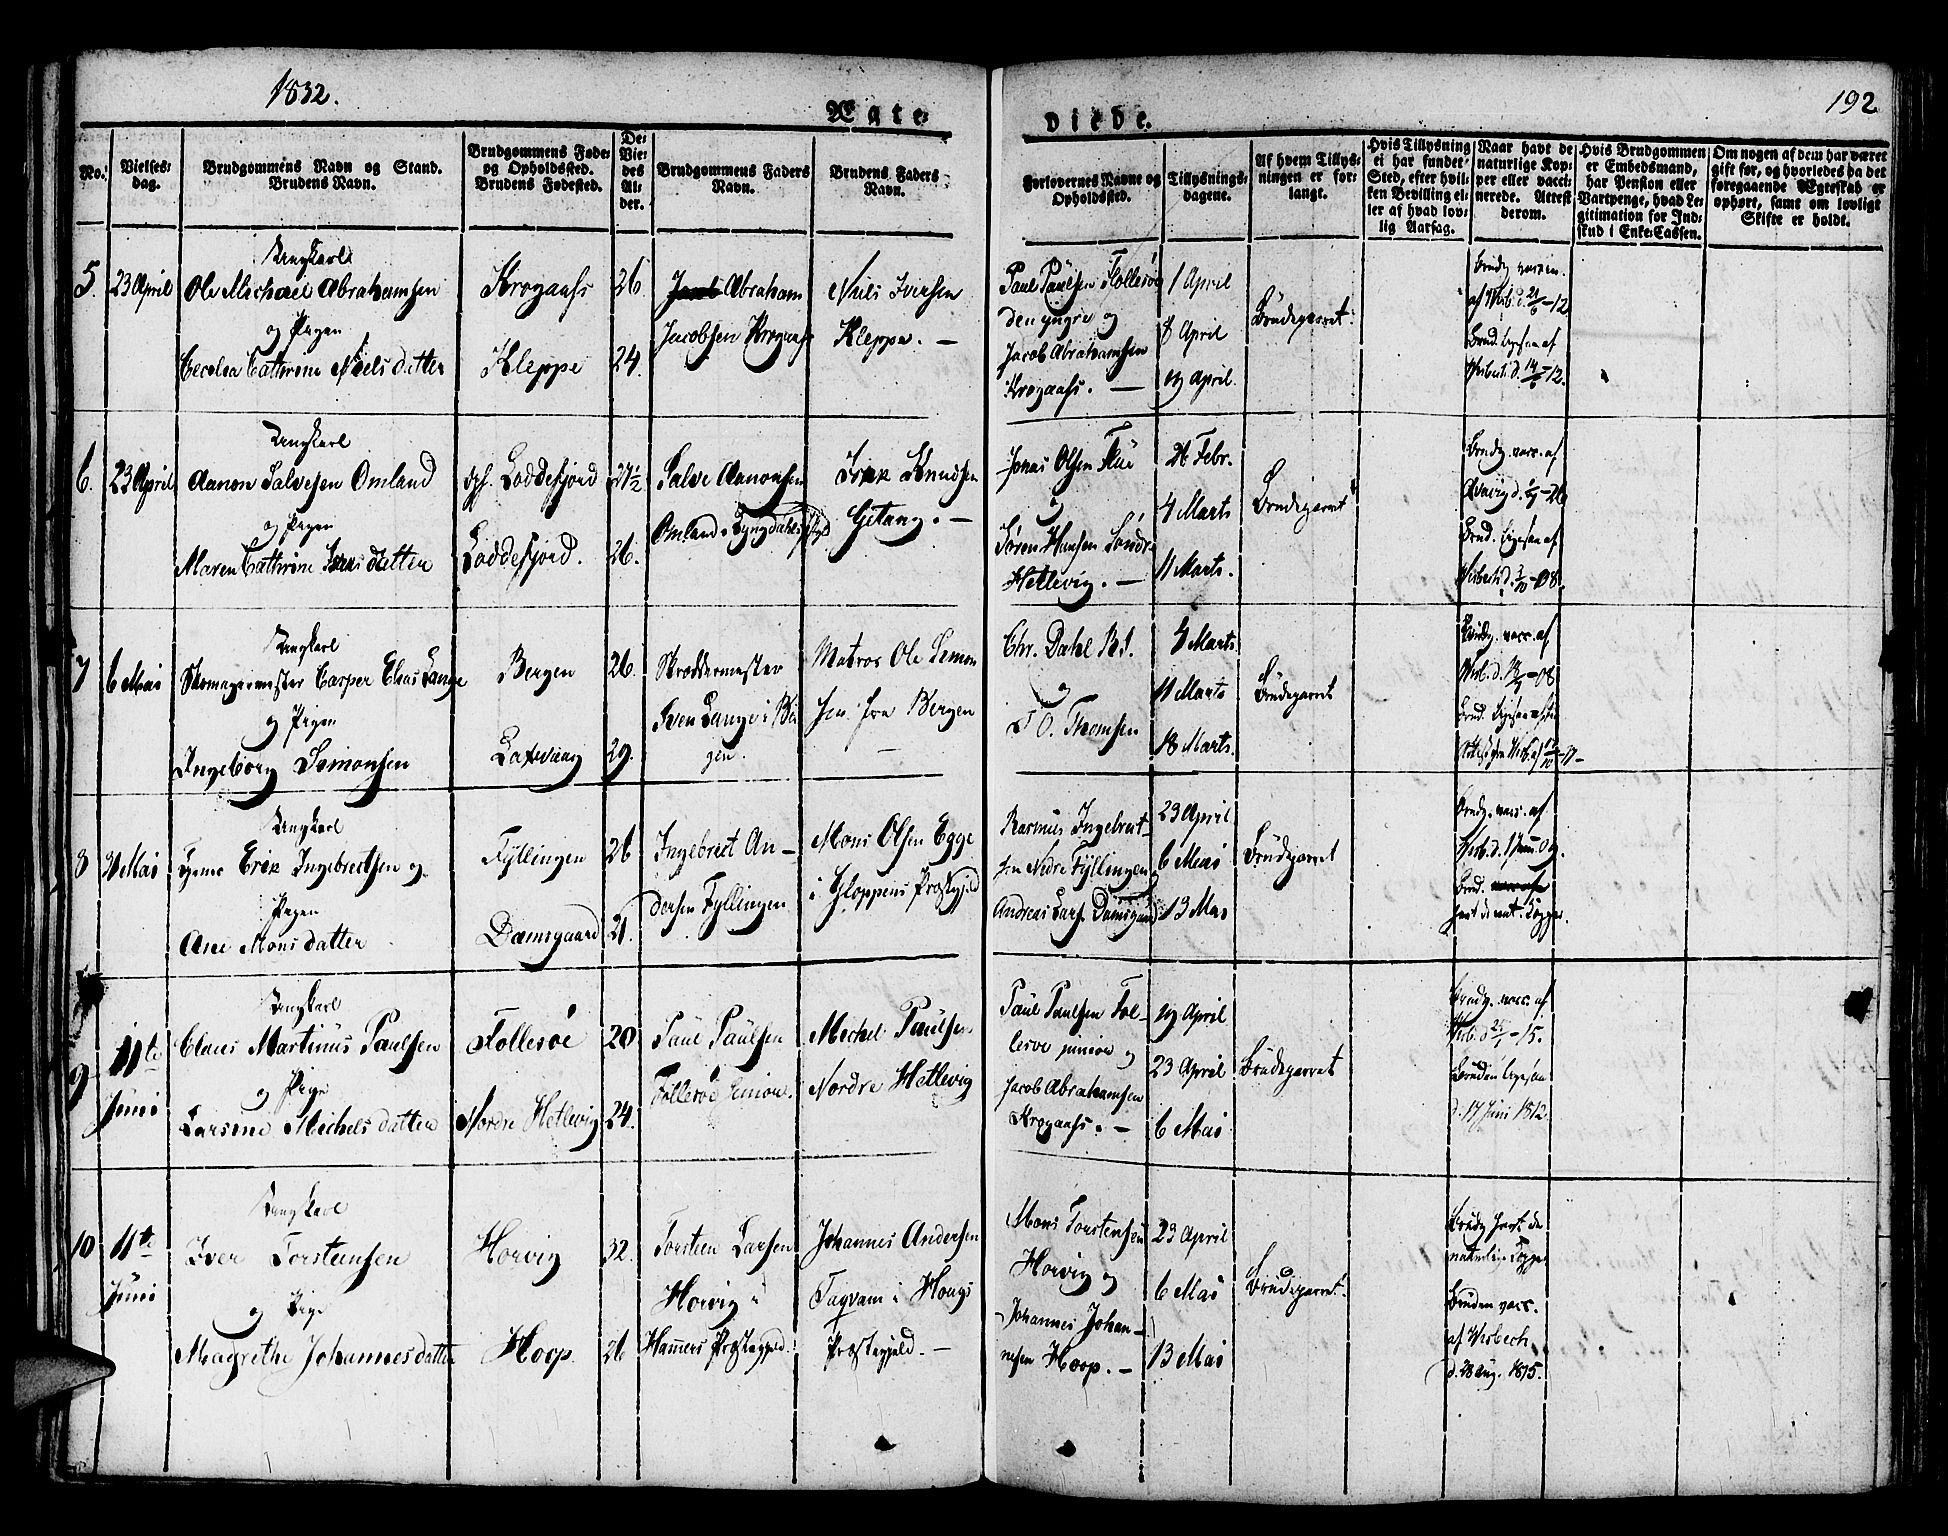 1832.
192
Ægte-
viede.
No.
Vielses-
dag.
Brudgommens Navn og Stand.
Brudens Navn.
Brudgommens Føde-
og Opholdssted.
Brudens Fødested.
De
Vie-
des
Al-
der.
Brudgommens Faders
Navn.
Brudens Faders
Navn.
Forlovernes Navne og
Opholdssted.
Tillysnings-
dagene.
Af hvem Tillys-
ningen er for-
langt.
Hvis Tillysning
ei har fundet
Sted, efter hvil-
ken Bevilling el-
ler af hvad lov-
lig Aarsag.
Naar havt de
naturlige Kop-
per eller vacci-
nerede. Attest
derom.
Hvis Brudgommen
er Embedsmand,
har Pension eller
Vartpenge, hvad Le-
gitimation for Ind-
skud i Enke-Cassen.
Om nogen af dem har været
gift før, og hvorledes da det
foregaaende Ægteskab er
ophørt, samt om lovligt
Skifte er holdt.
5.
23 April
Ungkarl
Ole Michael Abrahamsen
og Pigen
Cecelia Cathrine Nielsdatter
Krogaass
Kleppe
26
24.
Jacob Abraham
Jacobsen Krogaass
Niels Iversen
Kleppe. —
Paul Paulsen Follesøe
den yngre og
Jacob Abrahamsen
Krogaass. —
1 April
8 April
19 April.
Brudeparret.
6.
23 April
Ungkarl
Aanon Salvesen Omland
og Pigen
Maren Cathrine datter
Loddefjord
Loddefjord.
27½
26.
Salve Aanonsen
Omland i Lyngdahls
Knudsen
Gitang. —
Jonas Olsen
og
Søren Hansen Søndre
Hetlevig. —
26 Febr.
4 Marts
11 Marts.
Brudeparret
7
6 Mai
Ungkarl
Skomagermester Casper Elias Lange
og Pigen
Ingeborg Simonsen
Bergen
Laxevaag
26.
29.
Skræddermester
Sven Lange i Ber
gen.
Matros Ole Simon
sen fra Bergen
—
Chr. Dahl
og
O. Thomsen
4 Marts
11 Marts
18 Marts.
Brudeparret
8
Mai
Ungkarl
Erik Ingebretsen og
Pigen
Ane Monsdatter
Fyllingen
Damsgaard
26
21.
Ingebret An—
dersen Fyllingen
Mons Olsen Egge
i Gloppens Præstegjeld
Rasmus Ingebret-
sen Nedre Fyllingen
Andreas Lars. Damsgaard
23 April
6 Mai
13 Mai
Brudeparret
9
11te
Juni
Ungkarl
Claus Martinus Paulsen
og Pige
Larsine Michelsdatter
Follesøe
Nordre Hetlevig
20
24.
Paul Paulsen
Follesøe senior.
Michel Paulsen
Nordre Hetlevig
Paul Paulsen Fol-
lesøe junior og
Jacob Abrahamsen
Krogaass. —
19 April
23 April
6 Mai
Brudeparret
Bruden ligesaa
d. 17 Juni 1812.
10
11te
Juni
Ungkarl
Iver Torstensen
og Pige
Magrethe Johannesdatter
Horvig
Hoop.
32.
26
Torsten Larsen
Horvig i
Hamers Præstegjeld.
Johannes Andersen
Fagvam i Hougs
Præstegjeld. —
Mons Torstensen
Horvig og
Johannes Johan-
nesen Hoop. —
23 April
6 Mai
13 Mai
Brudeparret.
Brudg. havt de
naturlige Kopper
Bruden vacc.
af Wisbech
d. 28 Aug. 1815.